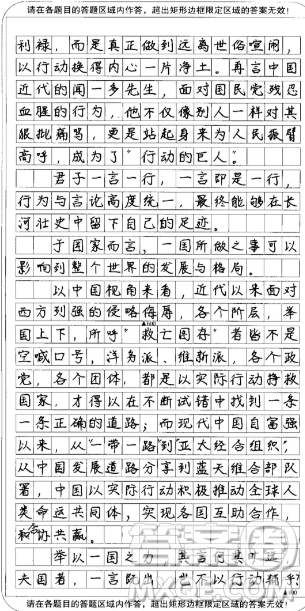 请在各题目的答题区域内作答，超出矩形边框限定区域的答案无效！
利禄，而是真正做到远离世俗喧闹，
以行动换得内心一片净土。再言中国
近代的闻一多先生，面对国民党残忍
血腥的行为，他不仅像别人一样对其
狠批痛骂，更是站起身来为人民振臂
高呼，成为了"行动的巨人"。
君子一言一行，一言即是一行，
行为与言论高度统一，最终能够在长
河壮史中留下自己的足迹。
于国家而言，一国所做之事可以
影响到整个世界的发展与格局。
以中国视角来看，近代以来面对
西方列强的侵略侮辱，各个阶层，举
国上下，所呼"救亡图存"者皆不是
空喊口号，洋务派、维新派，各个政
党，各个团体，都是以实际行动拯救
国家，才得以在不断试错中找到一条
一条正确的道路；而现代中国自富强
以来，从"一带一路"到"亚太经合组织"，
从中国发展道路分享到蓝天维合部队
署，中国以实际行动积极推动全球人
类命运共同体，实现各国互助合作，
和协共赢。
举以一国之力，其言何其
夫国者，一言既出，也不以行动
请在各题目的答题区域内作答，超出矩形边框限定区域的答案无效！